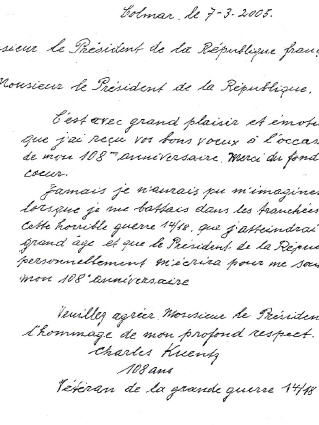 Colmar, le 7-3-2005.
sieur le Président de la République franç
Monsieur le Président de la République,
C'est avec grand plaisir et émoti
que j'ai reçu vos bons vœux à l'occas
de mon 108me anniversaire. Merci du fond
coeur.
Jamais je n'aurais pu m'imagine
lorsque je me battais dans les tranchées
cette horrible guerre 14/18, que j'atteindrai
grand âge et que le Président de la Répu
personnellement m'écrira pour me sou
mon 108e anniversaire
Veuillez agréer, Monsieur le Présiden
l'hommage de mon profond respect.
Charles Kuentz
108 ans
Vétéran de la grande guerre 14/18